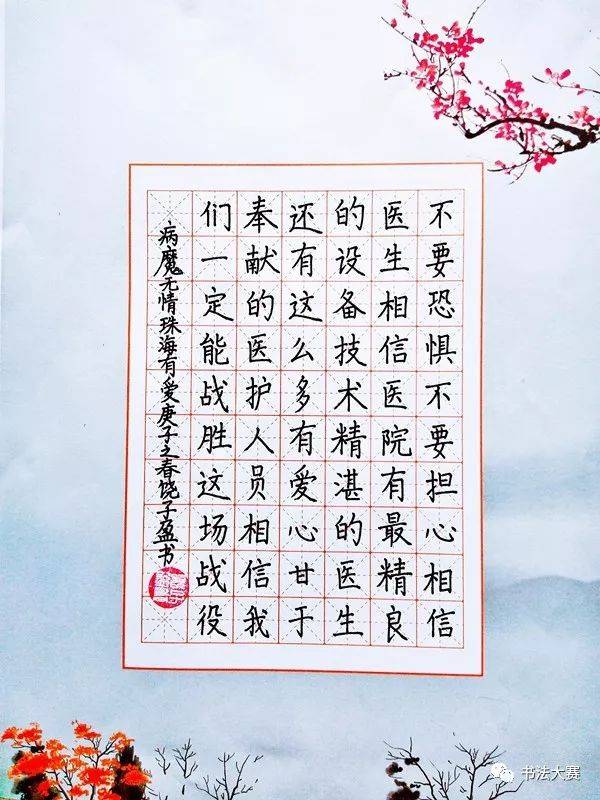 不要恐惧不要担心相信
医生相信医院有最精良
的设备技术精湛的医生
还有这么多有爱心甘于
奉献的医护人员相信我
们一定能战胜这场战役
病魔无情珠海有爱庚子之春饶子盈书
书法大赛